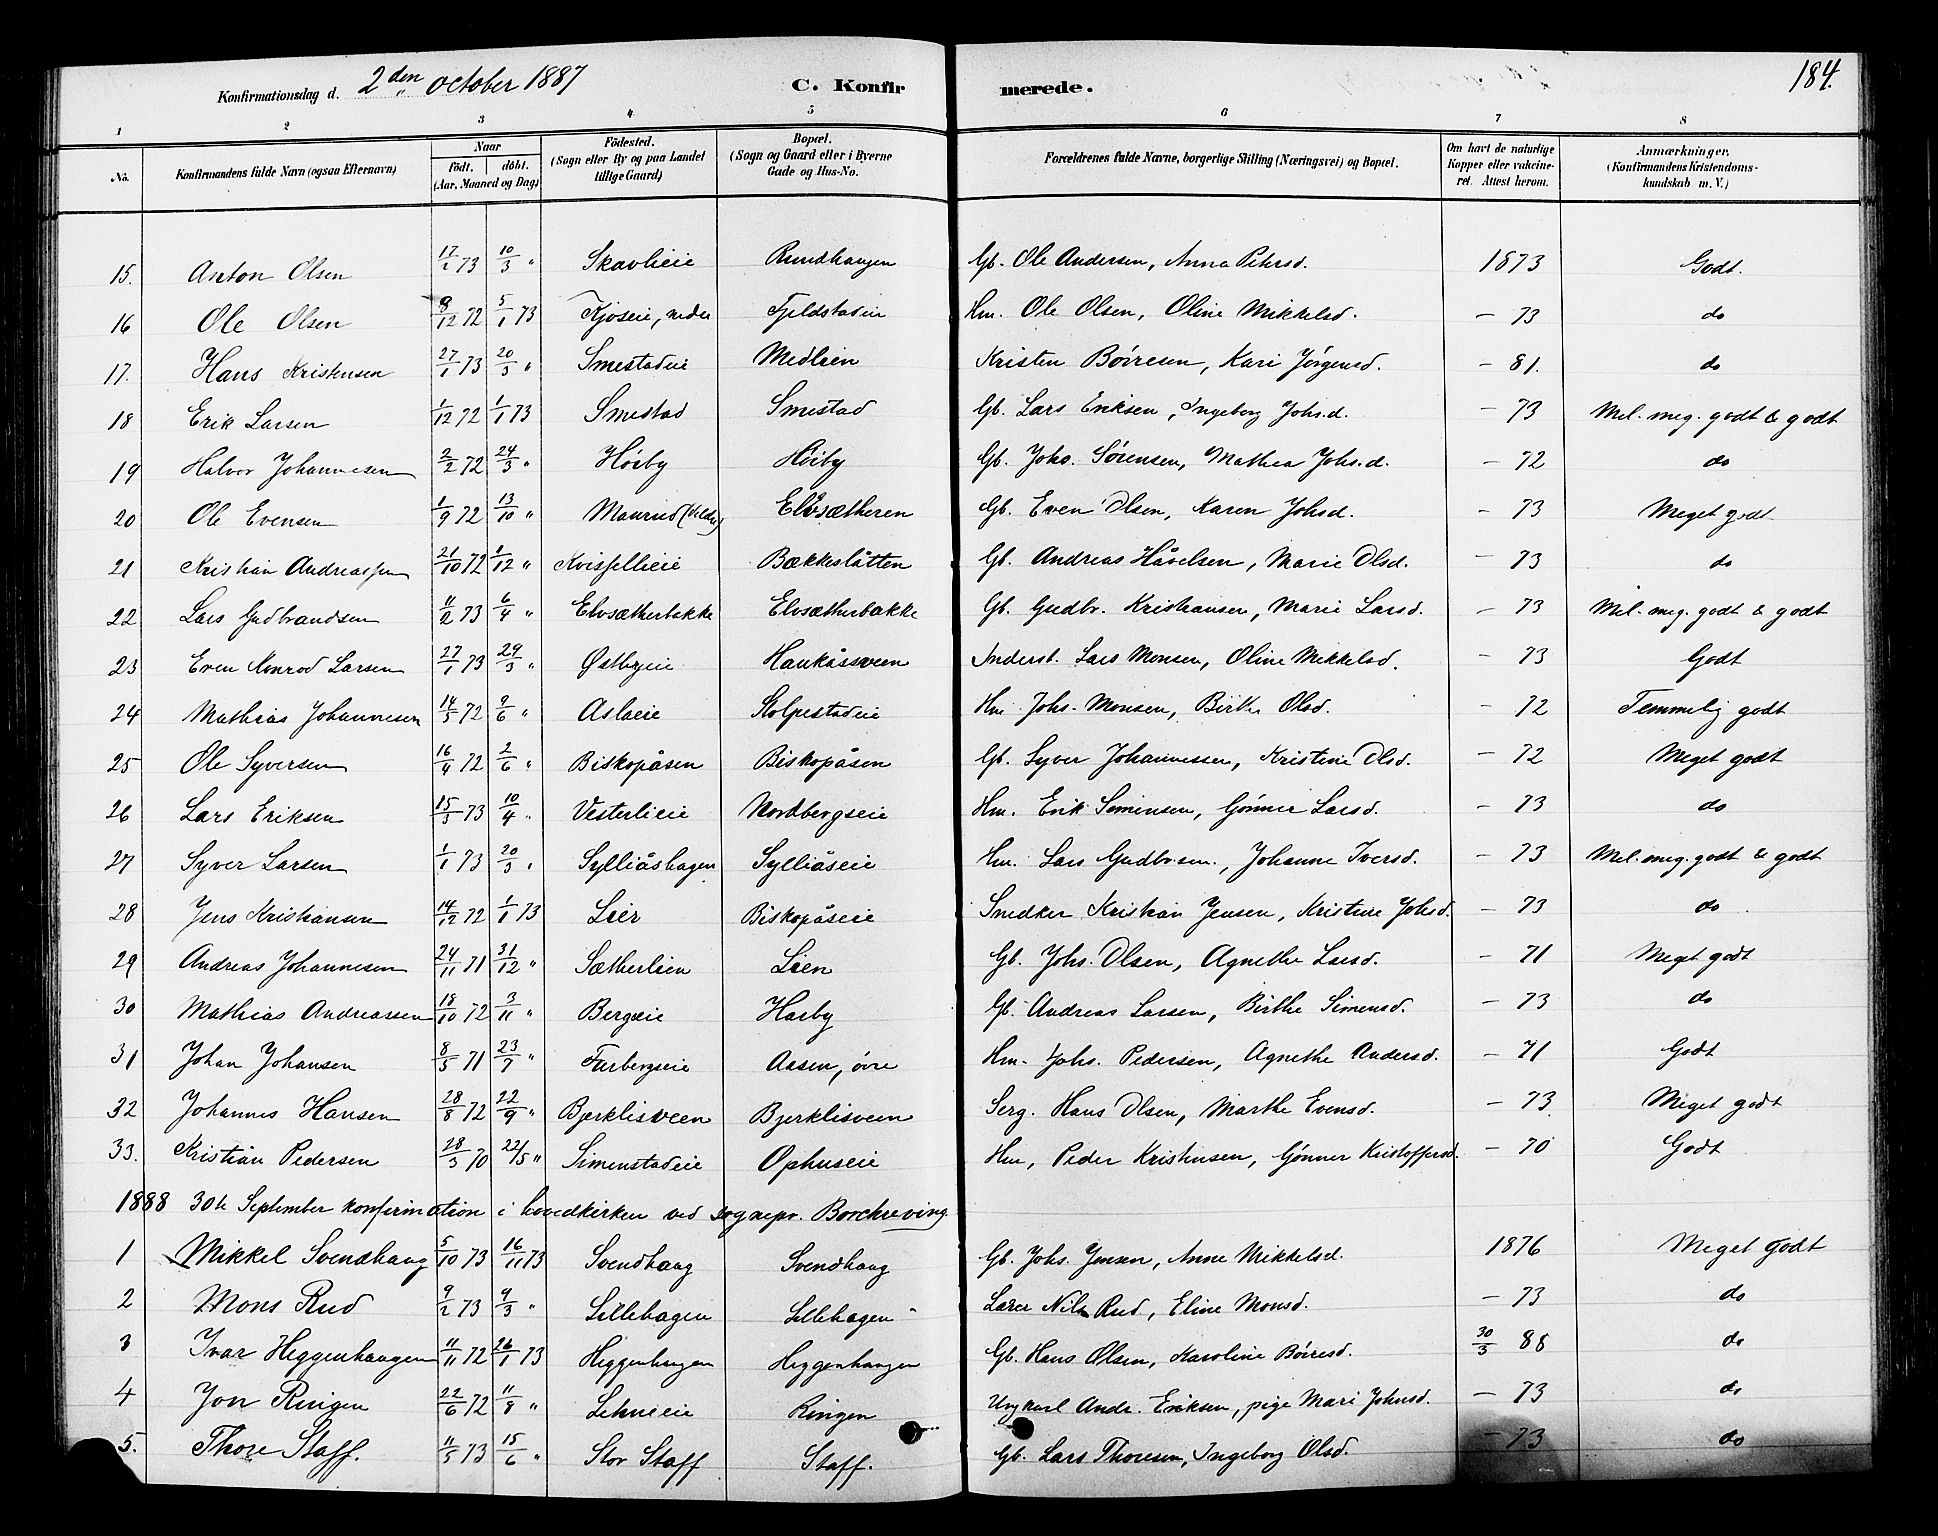 Konfirmationsdag d. 2den october 1887 C. Konfirmerede. 184.
1 2 3 4 5 6 7 8
No. Konfirmandens fulde Navn (ogsaa Efternavn) Naar født. døbt. (Aar, Maaned og Dag) Fødested. (Sogn eller By og paa Landet tillige Gaard) Bopæl. (Sogn og Gaard eller i Byerne Gade og Hus-No. Forældrenes fulde Navne, borgerlige Stilling (Næringsvei) og Bopæl. Om havt de naturlige Kopper eller vakcineret. Attest herom. Anmærkninger, (Konfirmandens Kristendomskundskab m. V.)
15. Anton Olsen 17/2 73 10/3 " Skavlieie Rundhaugen Gb. Ole Andersen, Anna Petersd. 1873 Godt.
16 Ole Olsen 9/12 72 5/1 73 Kjoseie, nedre Fjeldstadeie Hm. Ole Olsen, Oline Mikkelsd. - 73 do
17. Hans Kristensen 27/1 73 20/3 " Smestadeie Medlien Kristen Børresen, Kari Jørgensd. - 81. do
18 Erik Larsen 1/12 72 1/1 73 Smestad Smestad Gb. Lars Eriksen, Ingeborg Johs.d. - 73 Mel. meg. godt & godt
19 Halvor Johannesen 2/2 72 24/3 " Hørby Hørby Gb. Johs. Sørensen, Mathea Johs.d. - 72 do
20 Ole Evensen 1/9 72 13/10 " Maurud Elvsætheren Gb. Even Olsen, Karen Johsd. - 73 Meget godt
21 Kristian Andreassen 21/10 72 1/12 " Kvisfellieie Bækkeslåtten Gb. Andreas Håvelsen, Marie Olsd. - 73 do
22 Lars Gudbrandsen 11/2 73 6/4 " Elvsætherbakke Elvsætherbakke Gb. Gudbr. Kristiansen, Marie Larsd. - 73 Mel. meg. godt & godt
23 Even Konrad Larsen 27/1 73 29/3 " Østbyeie Haukåssveen Inderst. Lars Monsen, Oline Mikkelsd. - 73 Godt
24 Mathias Johannesen 14/5 72 9/6 " Aslaeie Stolpestadeie Hm. Johs. Monsen, Birthe Olsd. - 72 Temmelig godt
25 Ole Syversen 16/4 72 2/6 " Biskopåsen Biskopåsen Gb. Syver Johannessen, Kristine Olsd. - 72 Meget godt
26 Lars Eriksen 15/3 73 10/4 " Vesterlieie Nordbergseie Hm. Erik Simensen, Gønner Larsd. - 73 do
27 Syver Larsen 1/1 73 20/3 " Sylliåshagen Sylliåseie Hm. Lars Gudbrsen., Johanne Iversd. - 73 Mel. meg. godt & godt
28 Jens Kristiansen 14/12 72 1/1 73 Lier Biskopåseie Snedker Kristian Jensen, Kristine Johsd. - 73 do
29 Andreas Johannesen 24/11 71 31/12 " Sætherlien Lien Gb. Johs. Olsen, Agnethe Larsd. - 71 Meget godt
30 Mathias Andreassen 18/10 72 3/11 " Bergeie Harby Gb. Andreas Larsen, Birthe Simensd. - 73 do
31 Johan Johansen 8/5 71 23/7 " Furbergseie Aasen, øvre Hm. Johs. Pedersen, Agnethe Andersd. - 71 Godt
32 Johannes Hansen 28/8 72 22/9 " Bjerklisveen Bjerklisveen Serg. Hans Olsen, Marthe Evensd. - 73 Meget godt
33. Kristian Pedersen 28/3 70 22/5 " Simenstadeie Ophuseie Hm, Peder Kristensen, Gønner Kristoffersd. - 70 Godt
1888 30te September konfirmation i hovedkirken ved sognepr. Borchrevinq
1 Mikkel Svendhaug 5/10 73 16/11 73 Svendhaug Svendhaug Gb. Johs. Jensen, Anne Mikkelsd. 1876 Meget godt
2 Mons Rud 9/2 73 9/3 " Lillehagen Lillehagen Lærer Nils Rud, Eline Monsd. - 73 do
3 Ivar Heggenhaugen 11/11 72 26/1 73 Heggenhaugen Heggenhaugen Gb. Hans Olsen, Karoline Børresd. 30/3 88 do
4 Jon Ringen 22/6 72 11/8 " Lehneeie Ringen Ungkarl Andr. Eriksen, pige Mari Johnsd. - 73 do
5. Thore Staff. 11/5 73 15/6 " Stor Staff Staff. Gb. Lars Thoresen, Ingeborg Olsd. - 73 do